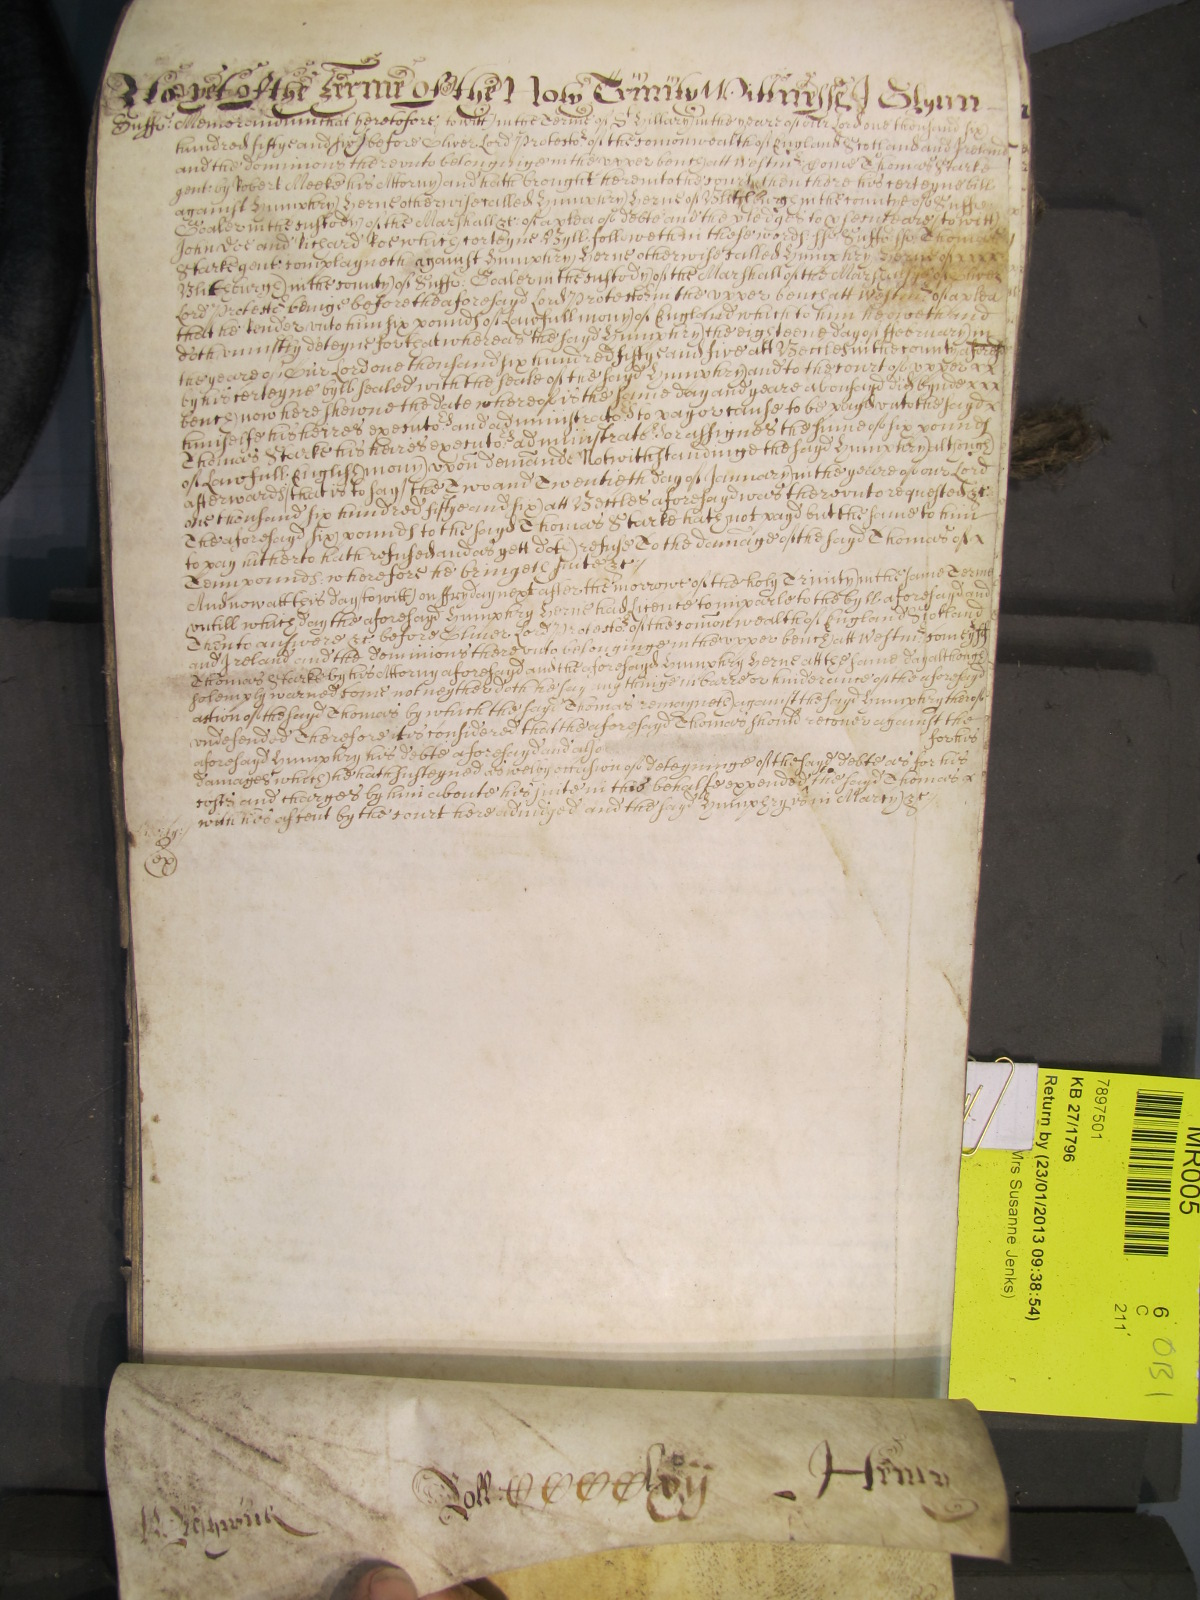 As yet of the Terme of the Holy Trinity Wittnesse J Glynn
Suff: Memorandum that heretofore to witt in the Terme of St Hillary in the yeare of our Lord one thousand six
hundred fiftye and six before Oliver Lord Protector of the comonwealth of England Scotland and Ireland
and the dominions thereunto belonginge in the upper bench att Westmr come Thomas Starke
gent by Robert Meeke his Attorny and hath brought here into the court then there his certeyne bill
against Humphry Herne otherwise called Humphry Herne of in the county of Suffolke
Goaler in the custody of the Marshall &c of a plea of debte and the pledges to prosecute are to witt
John Doe and Richard Roe which certeyne Byll followeth in these words ss Suffo: ss Thomas
Starke gent complayneth against Humphry Herne otherwise called Humphry Herne of xxxx
in the county of Suffo: Goaler in the custody of the Marshall of the Marshalsye of Oliver
Lord Protector beinge before the aforesayd Lord Protector in the upper bench att Westmr of a plea
that he render unto him six pounds of Lawfull mony of England which to him he oweth and
doth uniustly deteyne for that whereas the sayd Humphry the eighteene day of ffebruary in
the yeare of Our Lord one thousand six hundred fiftye and five att Beccles in the county aforesd
by his certeyne byll sealed with the seale of the sayd Humphry and to the court of upper xx
bench now here shewne the date whereof is the same day and yeare abovesayd did bynde xxx
himselfe his heires executors and administrators to pay or cause to be payd unto the sayd x
Thomas Starke his heires executors administrators or assignes the sume of six pounds
of Lawfull English mony upon demande Notwithstandinge the sayd Humphry although
afterwards that is to say the Two and Twentieth day of January in the yeare of our Lord
one thousand six hundred fiftye and six att Beccles aforesayd was thereunto requested &c
The aforesayd six pounds to the sayd Thomas Starke hath not payd but the same to him
to pay hitherto hath refused and as yett doth refuse To the damage of the sayd Thomas of x
Tenn pounds: wherefore he bringeth suite &c
And now att this day to witt on ffryday next after the morrowe of the holy Trinity in the same Terme
untill which day the aforesayd Humphry Herne had licence to imparle to the byll aforesayd and
Then to answere &c before Oliver Lord Protector of the comonwealth of England Scotland
and Ireland and the dominions thereunto belonginge in the upper bench att Westmr comyth
Thomas Starke by his Attorny aforesayd and the aforesayd Humphry Herne att the same day although
solemply warned come not neyther doth he say any thinge in barre or hinderance of the aforesayd
action of the sayd Thomas by which the sayd Thomas remayneth against the sayd Humphry thereof
undefended Therefore it is considered that the aforesayd Thomas should recover against the
aforesayd Humphry his debte aforesayd and also for his
damages which he hath susteyned as well by occasion of deteyninge of the sayd debte as for his
costs and charges by him aboute his suite in this behalfe expended the sayd Thomas x
with his assent by the court here adiudged and the sayd Humphry is in Marcy &c
Roll: CCCCCxvij
Henn
MR005
7897501
KB 27/1796
Return by (23/01/2013 09:38:54)
Mrs Susanne Jenks)
6
C
211
OB1